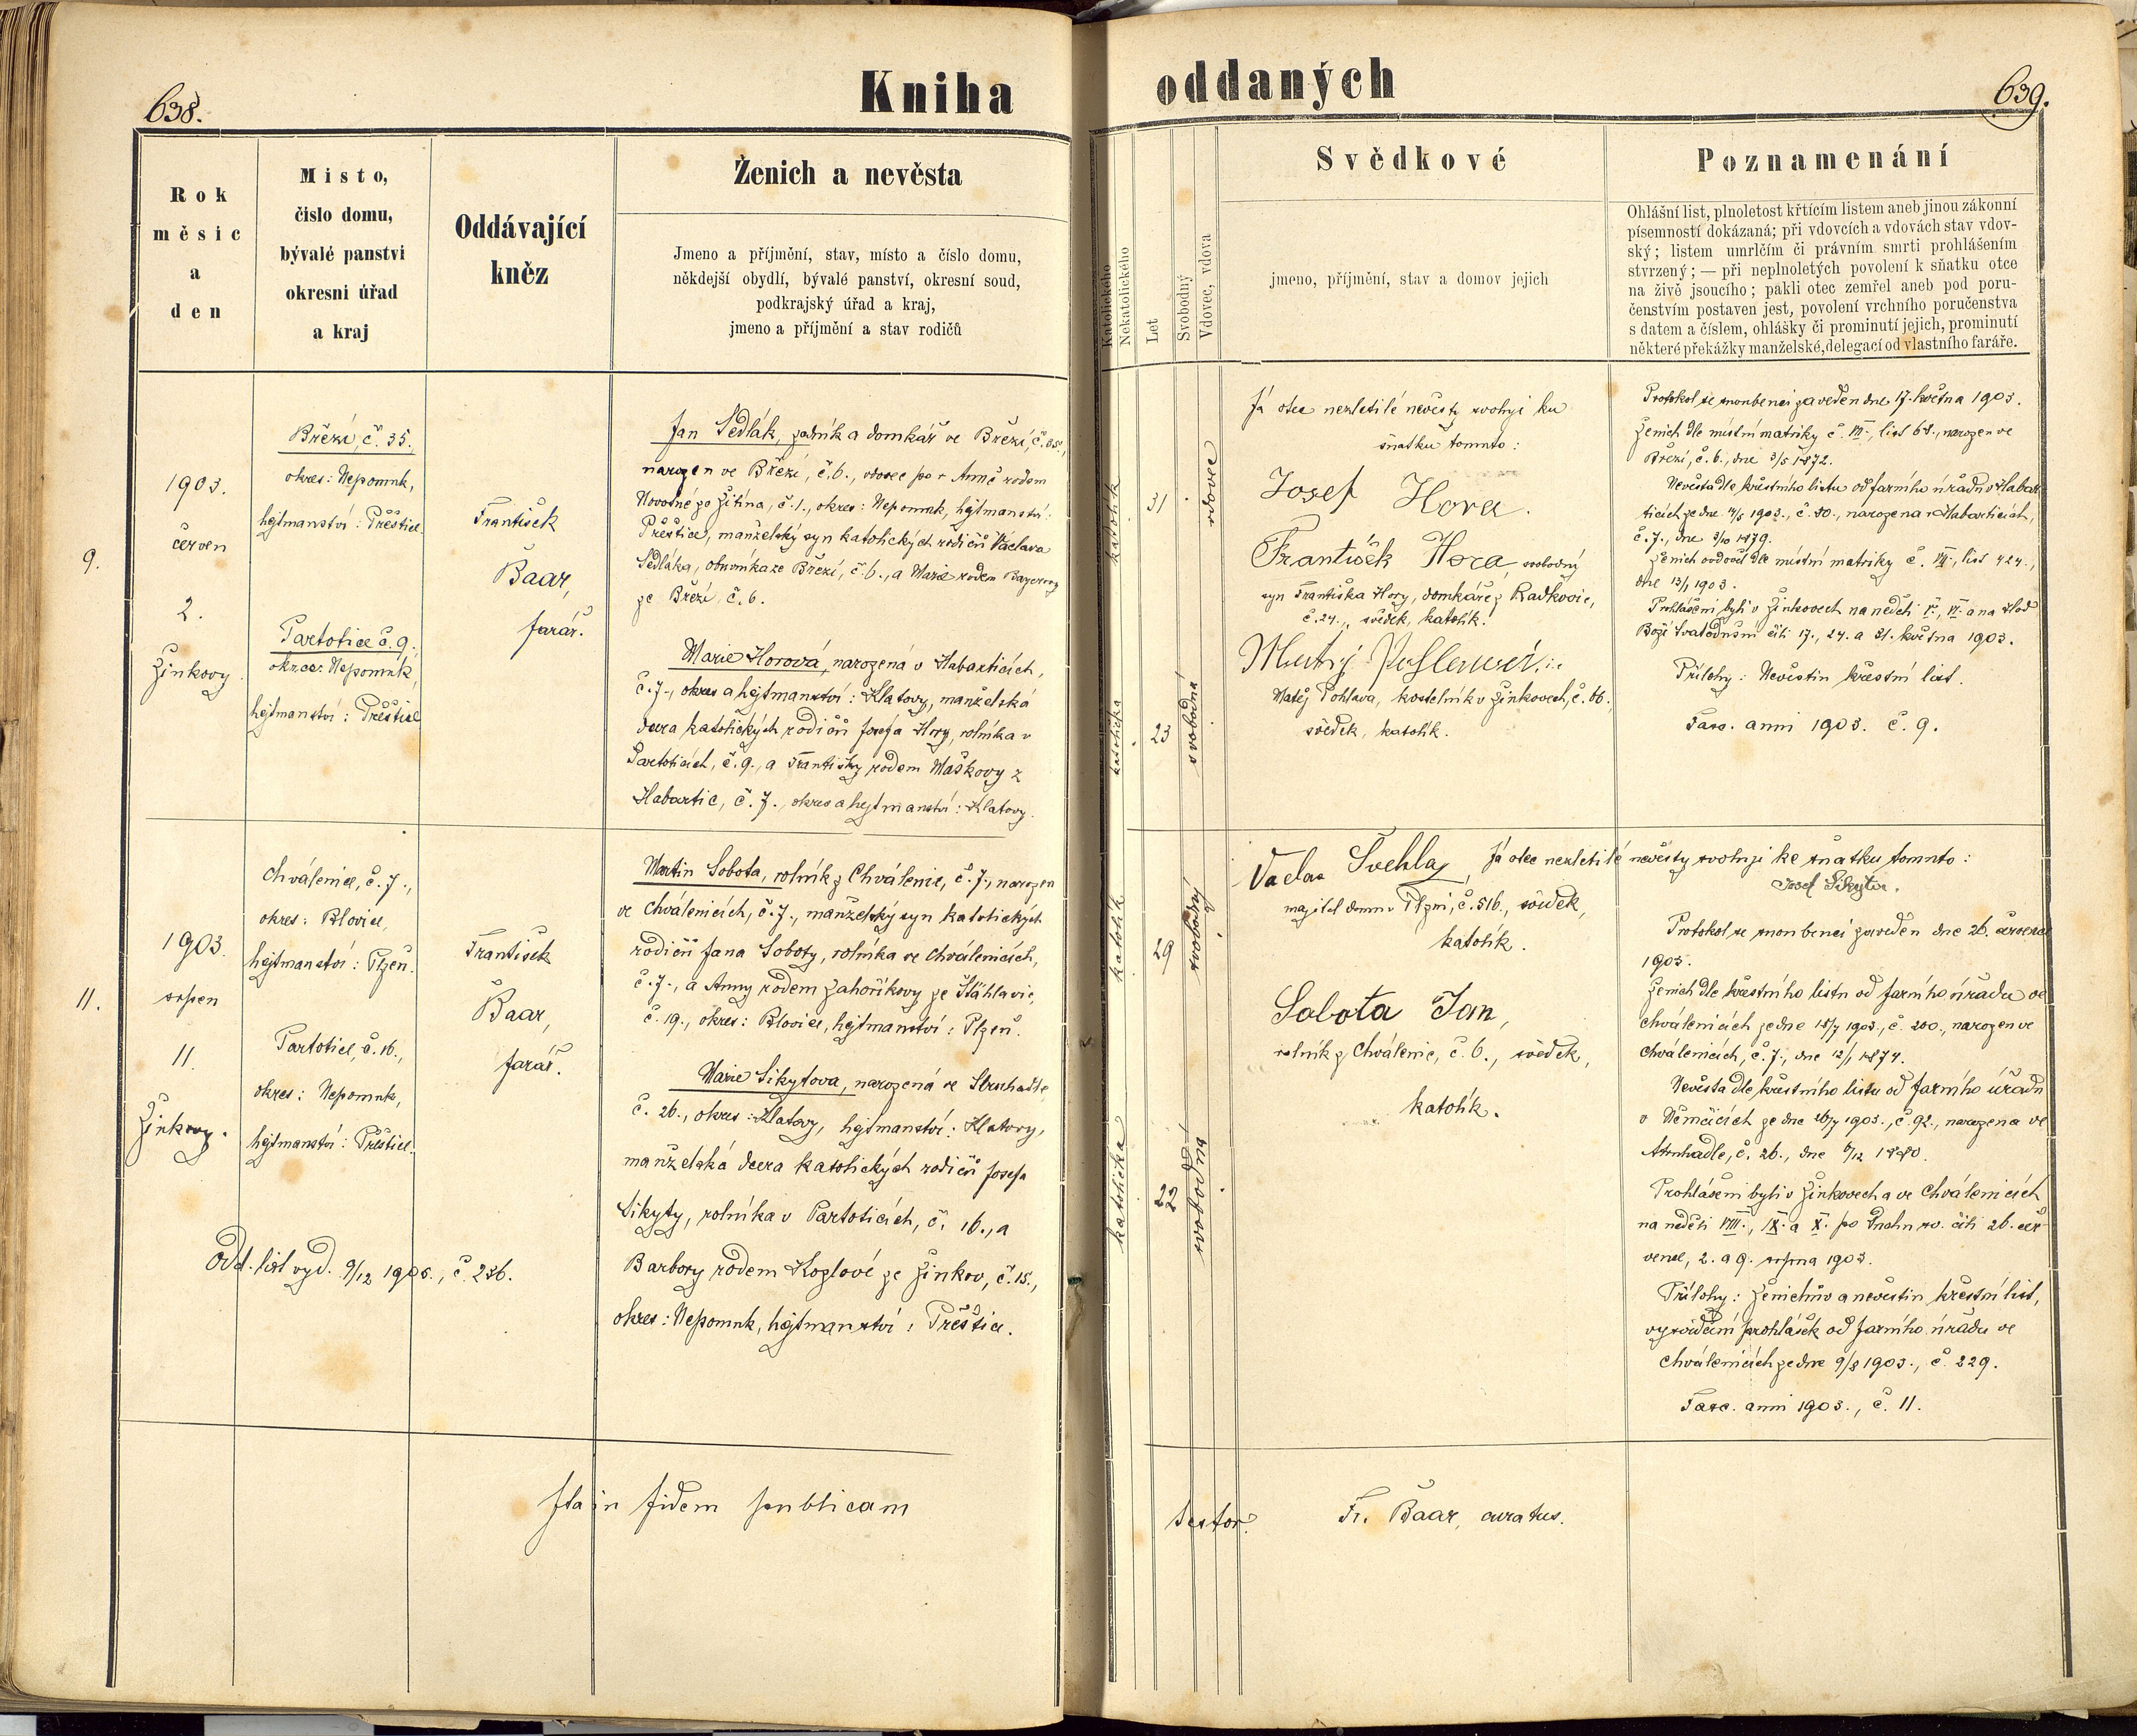 638.
Kniha
oddaných
639.
Rok
měsic
a
den
Misto,
čislo domu,
bývalé panstvi
okresni úřad
a kraj
Oddávající
kněz
Ženich a nevěsta
Jmeno a příjmění, stav, místo a číslo domu,
někdejší obydlí, bývalé panství, okresní soud,
podkrajský úřad a kraj,
jmeno a příjmění a stav rodičů
Katolického
Nekatolického
Let
Svobodný
Vdovec, vdova
Svědkové
jmeno, příjmění, stav a domov jejich
Poznamenání
Ohlášní list, plnoletost křtícím listem aneb jinou zákonní
písemností dokázaná; při vdovcích a vdovách stav vdov-
ský; listem umrlčím či právním smrti prohlášením
stvrzený; — při neplnoletých povolení k sňatku otce
na živě jsoucího; pakli otec zemřel aneb pod poru-
čenstvím postaven jest, povolení vrchního poručenstva
s datem a číslem, ohlášky či prominutí jejich, prominutí
některé překážky manželské, delegací od vlastního faráře.
9.
1903.
červen
2.
Žinkovy.
Březí, č. 35.,
okres: Nepomuk,
hejtmanství: Přeštice.
Partotice č. 9.,
okres: Nepomuk,
hejtmanství: Přeštice
František
Baar,
farář.
Jan Sedlák, zedník a domkář ve Březí, č. 35.,
narozen ve Březí, č. 6., vdovec po † Anně rodem
Novotné ze Žitína, č. 1., okres: Nepomuk, hejtmanství:
Přeštice, manželský syn katolických rodičů Václava
Sedláka, obuvníka ze Březí, č. 6., a Marie rodem Bayerovy
ze Březí, č. 6.
Marie Horová, narozená v Habarticích,
č. 7., okres a hejtmanství: Klatovy, manželská
dcera katolických rodičů Josefa Hory, rolníka v
Partoticích, č. 9., a Františky rodem Maškovy z
Habartic, č. 7., okres a hejtmanství: Klatovy.
katolík
31
vdovec
katolička
23
svobodná
Já otec nezletilé nevěsty svoluji ku
sňatku tomuto:
Josef Hora.
František Hora, svobodný
syn Františka Hory, domkáře z Radkovic,
č. 24., svědek, katolík.
Matěj Pohlava, kostelník v Žinkovech, č. 66.,
svědek, katolík.
Protokol se snoubenci zaveden dne 17. května 1903.
Ženich dle místní matriky č. VII., list 68., narozen ve
Březí, č. 6., dne 3/5 1872.
Nevěsta dle křestního listu od farního úřadu v Habar-
ticích ze dne 14/5 1903., č. 90., narozena v Habarticích,
č. 7., dne 3/10 1879.
Ženich ovdověl dle místní matriky č. VII., list 424.,
dne 13/1 1903.
Prohlášeni byli v Žinkovech na neděli V., VI. a na Hod
Boží Svatodušní čili 17., 24. a 31. května 1903.
Přílohy: Nevěstin křestní list.
Fasc. anni 1903. č. 9.
11.
1903.
srpen
11.
Žinkovy.
Chválenice, č. 7.,
okres: Blovice,
hejtmanství: Plzeň.
Partotice, č. 16.,
okres: Nepomuk,
hejtmanství: Přeštice.
František
Baar,
farář.
Martin Sobota, rolník z Chválenic, č. 7., narozen
ve Chválenicích, č. 7., manželský syn katolických
rodičů Jana Soboty, rolníka ve Chválenicích,
č. 7., a Anny rodem Zahoříkovy ze Šťáhlavic,
č. 19., okres: Blovice, hejtmanství: Plzeň.
Marie Sikytova, narozená ve Struhadle,
č. 26., okres: Klatovy, hejtmanství: Klatovy,
manželská dcera katolických rodičů Josefa
Sikyty, rolníka v Partoticích, č. 16., a
Barbory rodem Kozlové ze Žinkov, č. 15.,
okres: Nepomuk, hejtmanství: Přeštice.
Odd. list vyd. 9/12 1905., č. 236.
katolík
29
svobodný
katolička
22
svobodná
Václav Švehla,
majitel domu v Plzni, č. 516., svědek,
katolík.
Sobota Jan,
rolník z Chválenic, č. 6., svědek,
katolík.
Já otec nezletilé nevěsty svoluji ke sňatku tomuto:
Josef Sikyta.
Protokol se snoubenci zaveden dne 26. července
1903.
Ženich dle křestního listu od farního úřadu ve
Chválenicích ze dne 18/7 1903., č. 200., narozen ve
Chválenicích, č. 7., dne 12/1 1874.
Nevěsta dle křestního listu od farního úřadu
v Němčicích ze dne 26/7 1903., č. 92., narozena ve
Struhadle, č. 26., dne 6/12 1880.
Prohlášeni byli v Žinkovech a ve Chválenicích
na neděli VIII., IX. a X. po Duchu sv. čili 26. čer-
vence, 2. a 9. srpna 1903.
Přílohy: Ženichův a nevěstin křestní list,
vysvědčení prohlášek od farního úřadu ve
Chválenicích ze dne 9/8 1903., č. 229.
Fasc. anni 1903., č. 11.
Ita in fidem publicam
testor.
Fr. Baar, curatus.